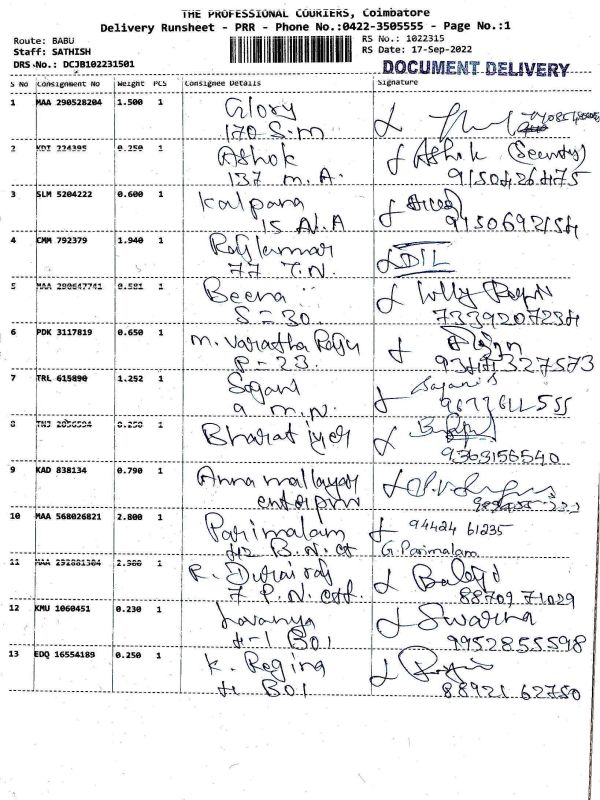 THE PROFESSIONAL COURIERS, Coimbatore
Delivery Runsheet - PRR - Phone No.:0422-3505555 - Page No.:1
Route: BABU
RS No.: 1022315
Staff: SATHISH
RS Date: 17-Sep-2022
DRS No.: DCJB102231501
DOCUMENT DELIVERY
S No Consignment No Weight PCS Consignee Details Signature
1 MAA 290528204 1.500 1 Glory
170 S.M
2 KDI 224395 0.250 1 Ashok Ashok (Security)
137 M.A.
3 SLM 5204222 0.600 1 Kalpana
15 A.A 9150692154
4 CMM 792379 1.940 1 Rajkumar DIL
77 T.N
5 MAA 290647741 0.581 1 Beena
S-30 7339207234
6 PDK 3117819 0.650 1 M. Varatha Raju
P-23. 9344327573
7 TRL 615890 1.252 1
9 M.N. 9677611555
8 0.250 1 Bharat iyer
9363156540
9 KAD 838134 0.790 1 Annamallayar
10 MAA 568026821 2.800 1 Parimalam 94424 61235
G. Parimalam
11 MAA 292881304 2.980 1 R. Durai raj Balaji
88709 71029
12 KMU 1060451 0.230 1 Lavanya Swarna
H-1 B01 9952855598
13 EDQ 16554189 0.250 1 K. Regina
H B01 88921 62750